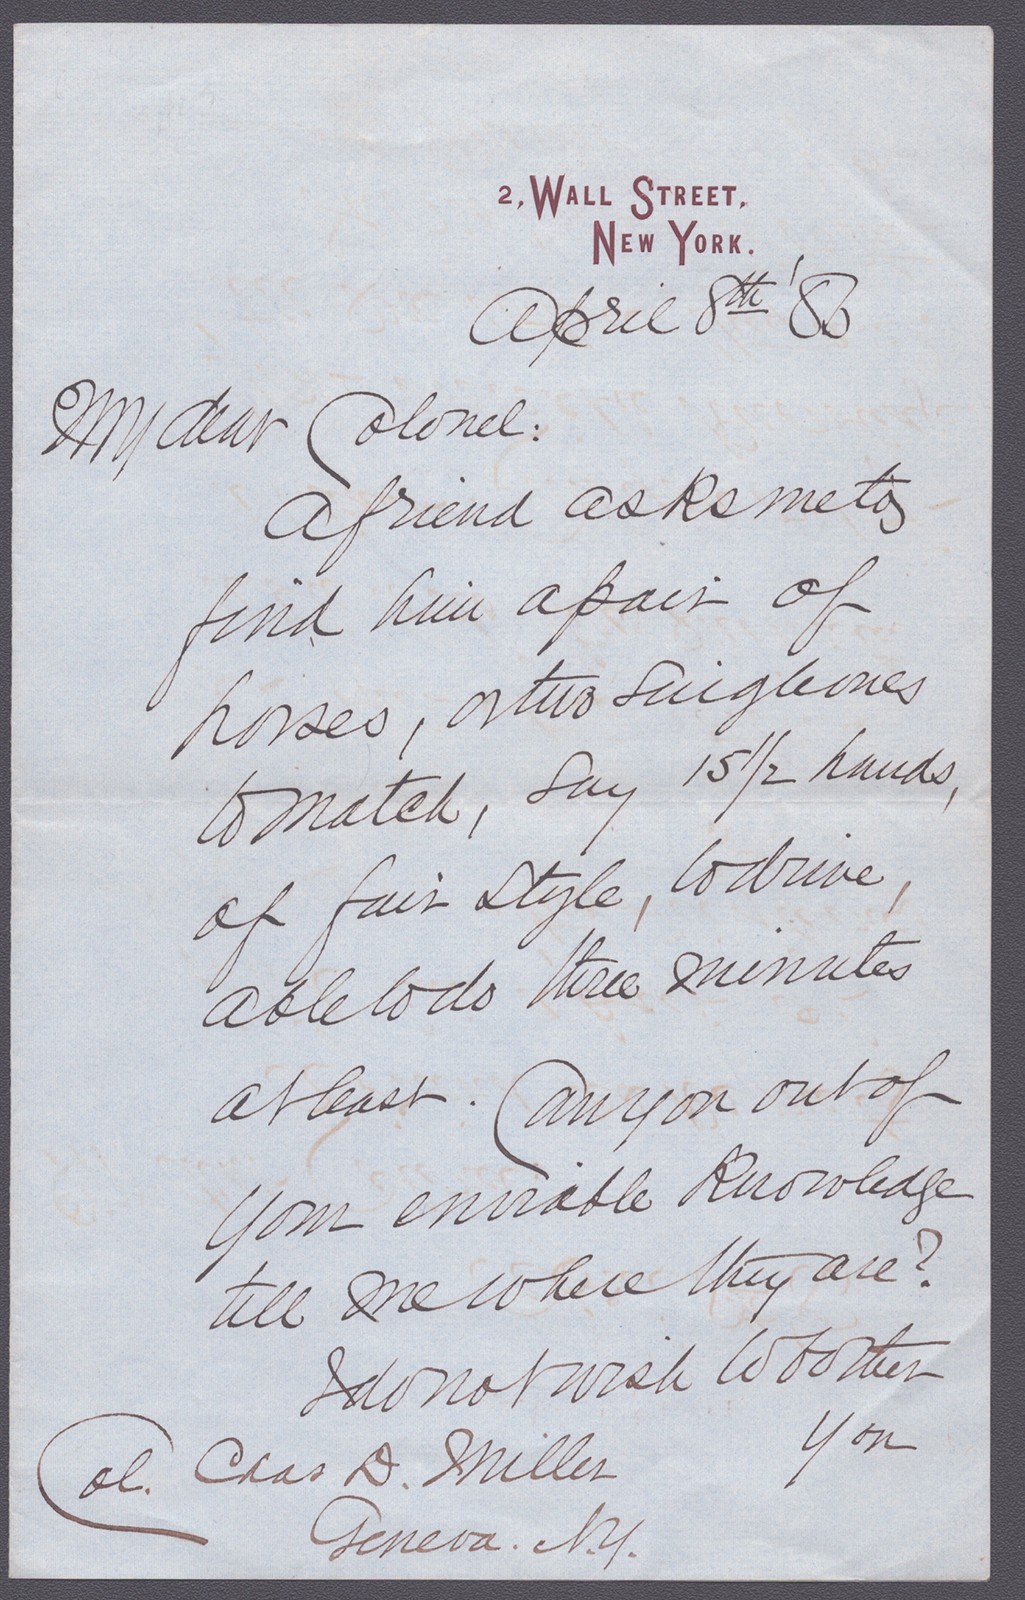 2, WALL STREET,
NEW YORK.
April 8th '86
My dear Colonel:
A friend asks me to
find him a pair of
horses, or two single ones
to match, say 15 1/2 hands,
of fair style, to drive,
able to do three minutes
at least. Can you out of
your enviable knowledge
tell me where they are?
I do not wish to bother
you
Col. Chas D. Miller
Geneva. N.Y.